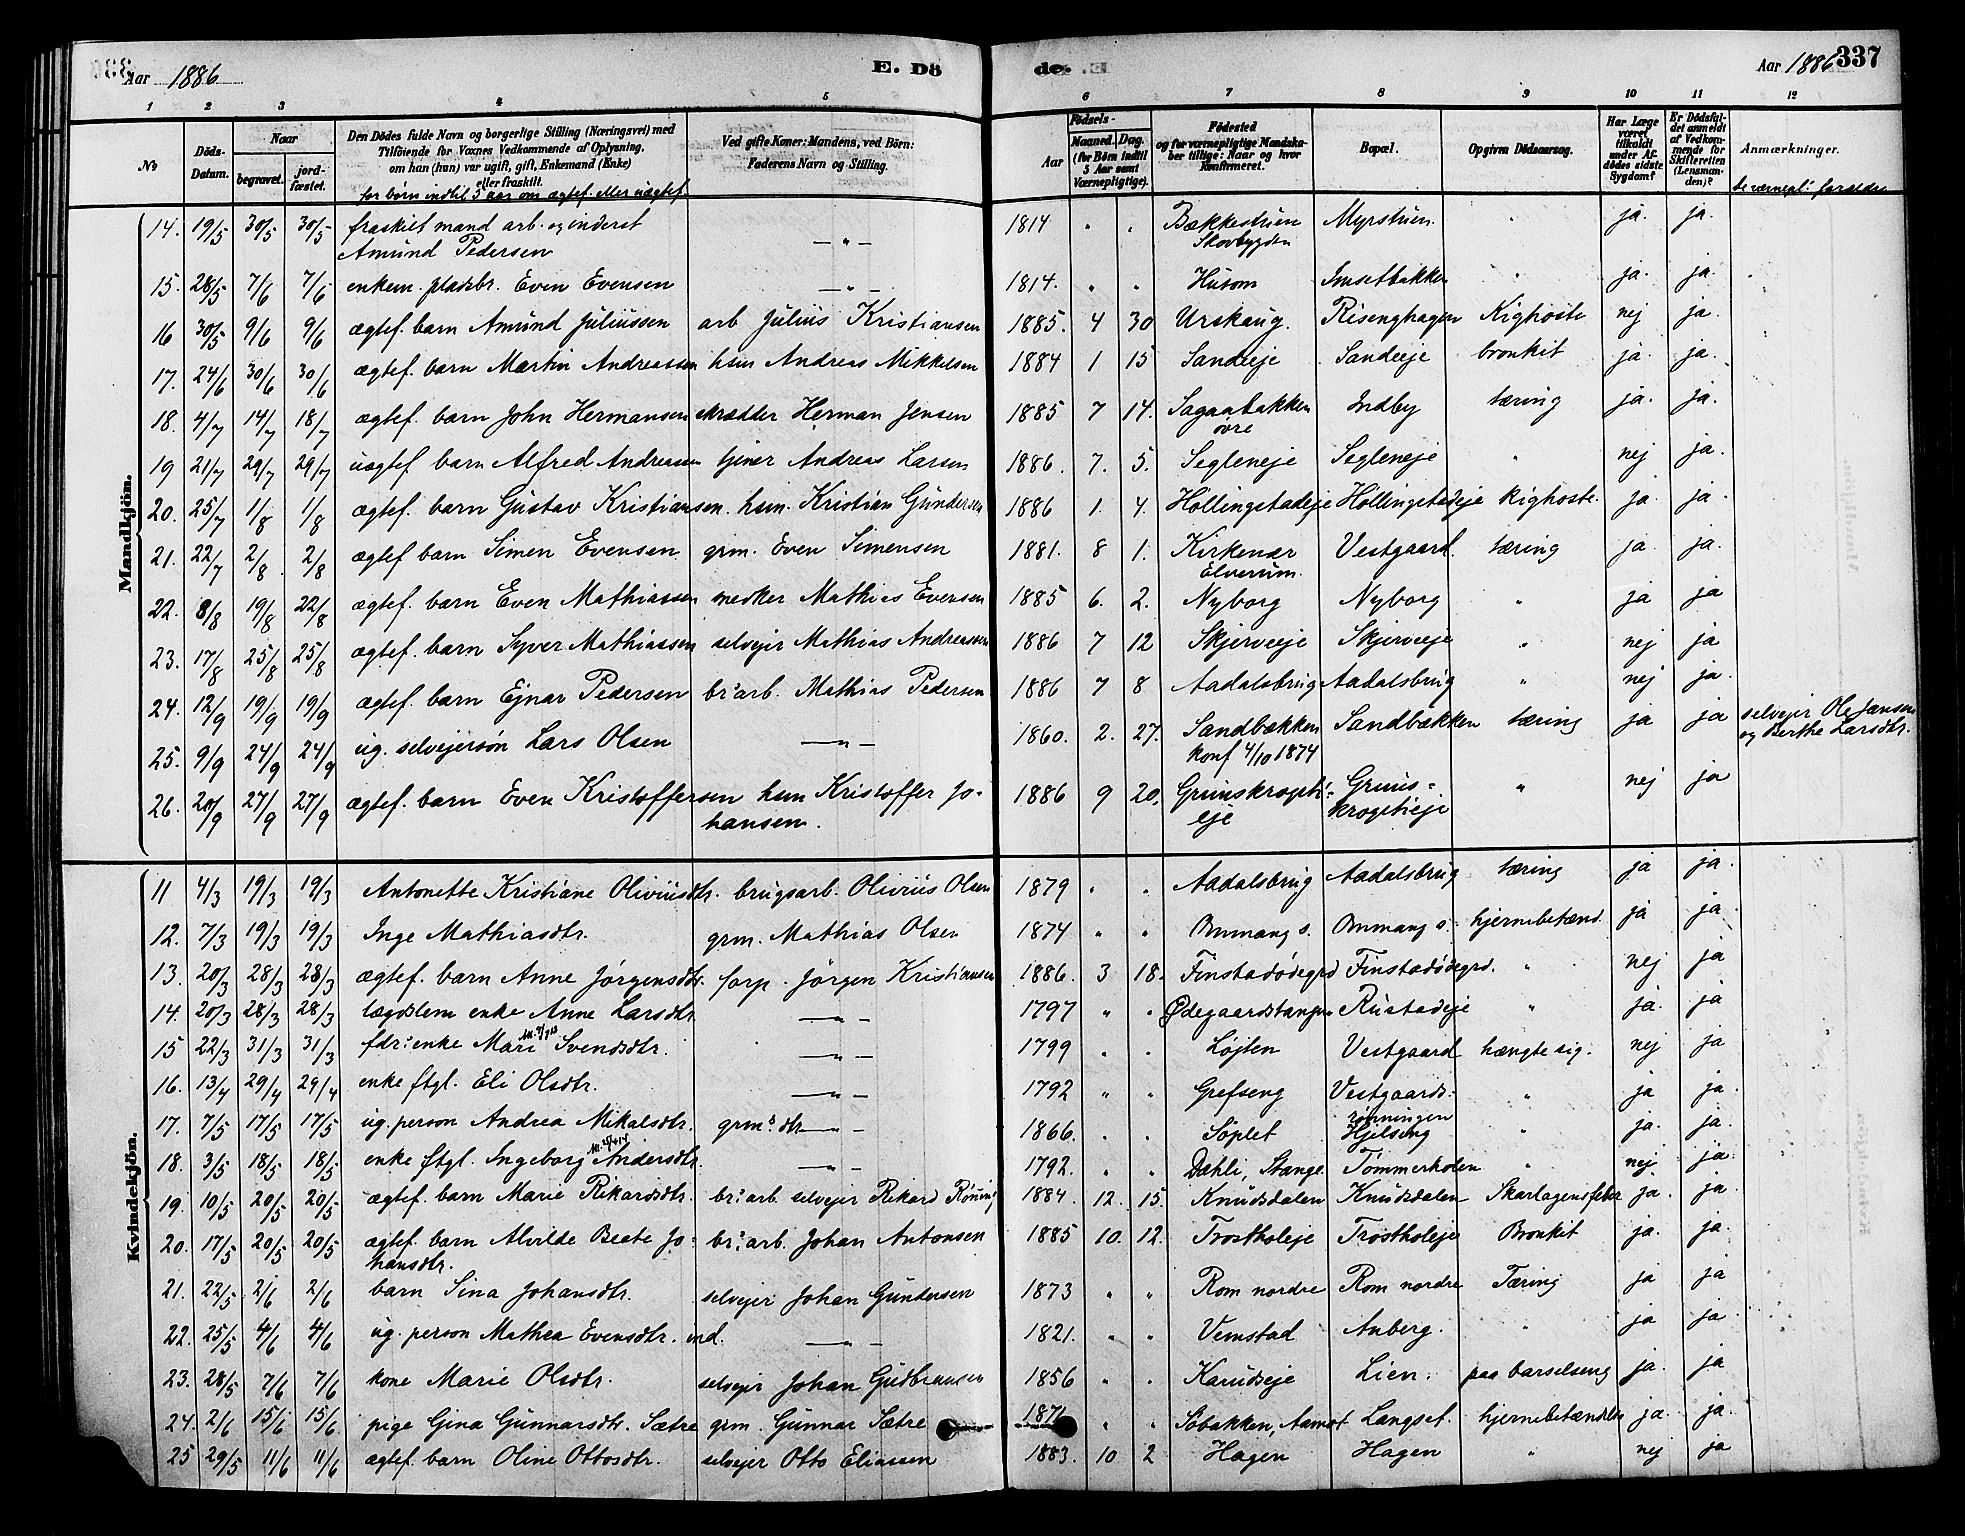 Aar 1886 E. Dö de. Aar 1886 337
1 2 3 4 5 6 7 8 9 10 11 12
No
Döds-Datum.
Naar
begravet.
jord-fæstet.
Den Dödes fulde Navn og borgerlige Stilling (Næringsvei) med
Tilföiende for Voxnes Vedkommende af Oplysning,
om han (hun) var ugift, gift, Enkemand (Enke)
eller fraskilt.
for börn indtil 5 aar om ægtef. eller uægtef.
Ved gifte Koner: Mandens, ved Börn:
Faderens Navn og Stilling.
Födsels-
Aar
Maaned. Dag.
(for Börn indtil
5 Aar samt
Værnepligtige).
Födested
og for værnepligtige Mandska-
ber tillige: Naar og hvor
Konfirmeret.
Bopæl.
Opgiven Dödsaarsag.
Har Læge
været
tilkaldt
under Af-
dödes sidste
Sygdom?
Er Dödsfal-
det anmeldt
af Vedkom-
mende for
Skifteretten
(Lensman-
den)?
Anmærkninger.
Mandkjön.
14. 19/5 30/5 30/5 fraskilt mand arb. og inderst — " — 1814 " " Bækkestuen Myrstuen " ja. ja.
Amund Pedersen Skovbygden
15. 28/5 7/6 7/6 enkem. pladsbr. Even Evensen — " — 1814. " " Husom Imsetbakken " ja. ja.
16 30/5 9/6 9/6 ægtef. barn Amund Juliussen arb Julius Kristiansen 1885. 4 30 Urskaug. Risenghagen Kighoste nej ja.
17. 24/6 30/6 30/6 ægtef. barn Martin Andreassen hsm Andreas Mikkelsen 1884 1 15 Sandeeje Sandeeje bronkit ja. ja.
18. 4/7 14/7 18/7 ægtef. barn John Hermansen skrædder Herman Jensen 1885 7 14. Sagaabakken Indby tæring ja. ja.
övre
19 21/7 29/7 29/7 uægtef. barn Alfred Andreasen tjener Andreas Larsen 1886. 7. 5. Segleneje Segleneje " nej ja.
20. 25/7 1/8 1/8 ægtef. barn Gustav Kristiansen. hsm. Kristian Gundersen 1886 1. 4. Hollingstadeje Hollingstadeje kighoste. ja ja
21. 22/7 2/8 2/8 ægtef barn Simen Evensen grm. Even Simensen 1881. 8 1. Kirkenær Vestgaard. tæring ja ja.
Elverum.
22. 8/8 19/8 22/8 ægtef. barn Even Mathiassen snedker Mathias Evensen 1885 6. 2. Nyborg Nyborg " ja ja
23. 17/8 25/8 25/8 ægtef. barn Syver Mathiassen selvejer Mathias Andreassen 1886 7 12 Skjerveeje Skjerveeje " nej ja
24. 12/9 19/9 19/9 ægtef. barn Ejnar Pedersen br.arb. Mathias Pedersen 1886 7 8 Aadalsbrug Aadalsbrug " nej ja.
25. 9/9 24/9 24/9 ug. selvejersön Lars Olsen — " — 1860. 2. 27. Sandbækken Sandbækken tæring ja ja selvejer Ole Jansen
konf 4/10 1874 og Berthe Larsdtr.
26. 20/9 27/9 27/9 ægtef. barn Even Kristoffersen hsm Kristoffer Jo- 1886 9 20. " nej ja
hansen. eje
Kvindekjön.
11 4/3 19/3 19/3 Antonette Kristiane Oliviusdtr. brugsarb. Olivius Olsen 1879 " " Aadalsbrug Aadalsbrug tæring ja ja.
12. 7/3 19/3 19/3 Inge Mathiasdtr. grm. Mathias Olsen 1874 " " Ommang s. Ommang s. hjernebetænd. ja ja
13. 20/3 28/3 28/3 ægtef. barn Anne Jörgensdtr. forp. Jörgen Kristiansen 1886. 3 18. Finstadödegrd Finstadödegrd. " nej ja
14. 20/3 28/3 28/3 lægdslem enke Anne Larsdtr. — " — 1797 " " Ødegaardstangen Rustadeje " ja. ja
15 22/3 31/3 31/3 fdr. enke Mari Svendsdtr. — " — 1799 " " Løjten Vestgaard hængte sig. nej ja
16. 13/4 29/4 29/4 enke ftgl. Eli Olsdtr. — " — 1792 " " Grefseng Vestgaards- " ja ja.
rönningen
17. 7/5 17/5 17/5 ug. person Andrea Mikalsdtr. grms dtr — " — 1866. " " Söplet Hjelseng " ja. ja.
18. 3/5 18/5 18/5 enke ftgl. Ingeborg Andersdtr. — " — 1792. " " Dæhli, Stange Tömmerholen " nej ja.
19. 10/5 20/5 20/5 ægtef. barn Marie Rikardsdtr. br.arb. selvejer Rikard Röning 1884. 12. 15. Knudsdalen Knudsdalen Skarlagensfeber ja. ja.
20. 17/5 20/5 20/5 ægtef. barn Alvilde Beate Jo- br.arb. Johan Antonsen 1885 10. 12. Trostholeje Trostholeje Bronkit ja. ja.
hansdtr.
21. 22/5 2/6 2/6 barn Sina Johansdtr. selvejer Johan Gundersen 1873 " " Rom nordre Rom nordre Tæring ja ja
22. 25/5 4/6 4/6 ug. person Mathea Evensdtr. ind. — " — 1821. " " Vemstad Anberg. " ja ja
23. 28/5 7/6 7/6 kone Marie Olsdtr. selvejer Johan Gudbransen 1856 " " Karudseje Lien. paa barselseng ja. ja
24. 2/6 15/6 15/6 pige Gina Gunnarsdtr. Sætre grm. Gunnar Sætre 1871 " " Söbakken, Aamot Langset. hjernebetændelse ja. ja.
25 29/5 11/6 11/6 ægtef. barn Oline Ottosdtr. selvejer Otto Eliassen 1883. 10 2 Hagen Hagen " nej ja